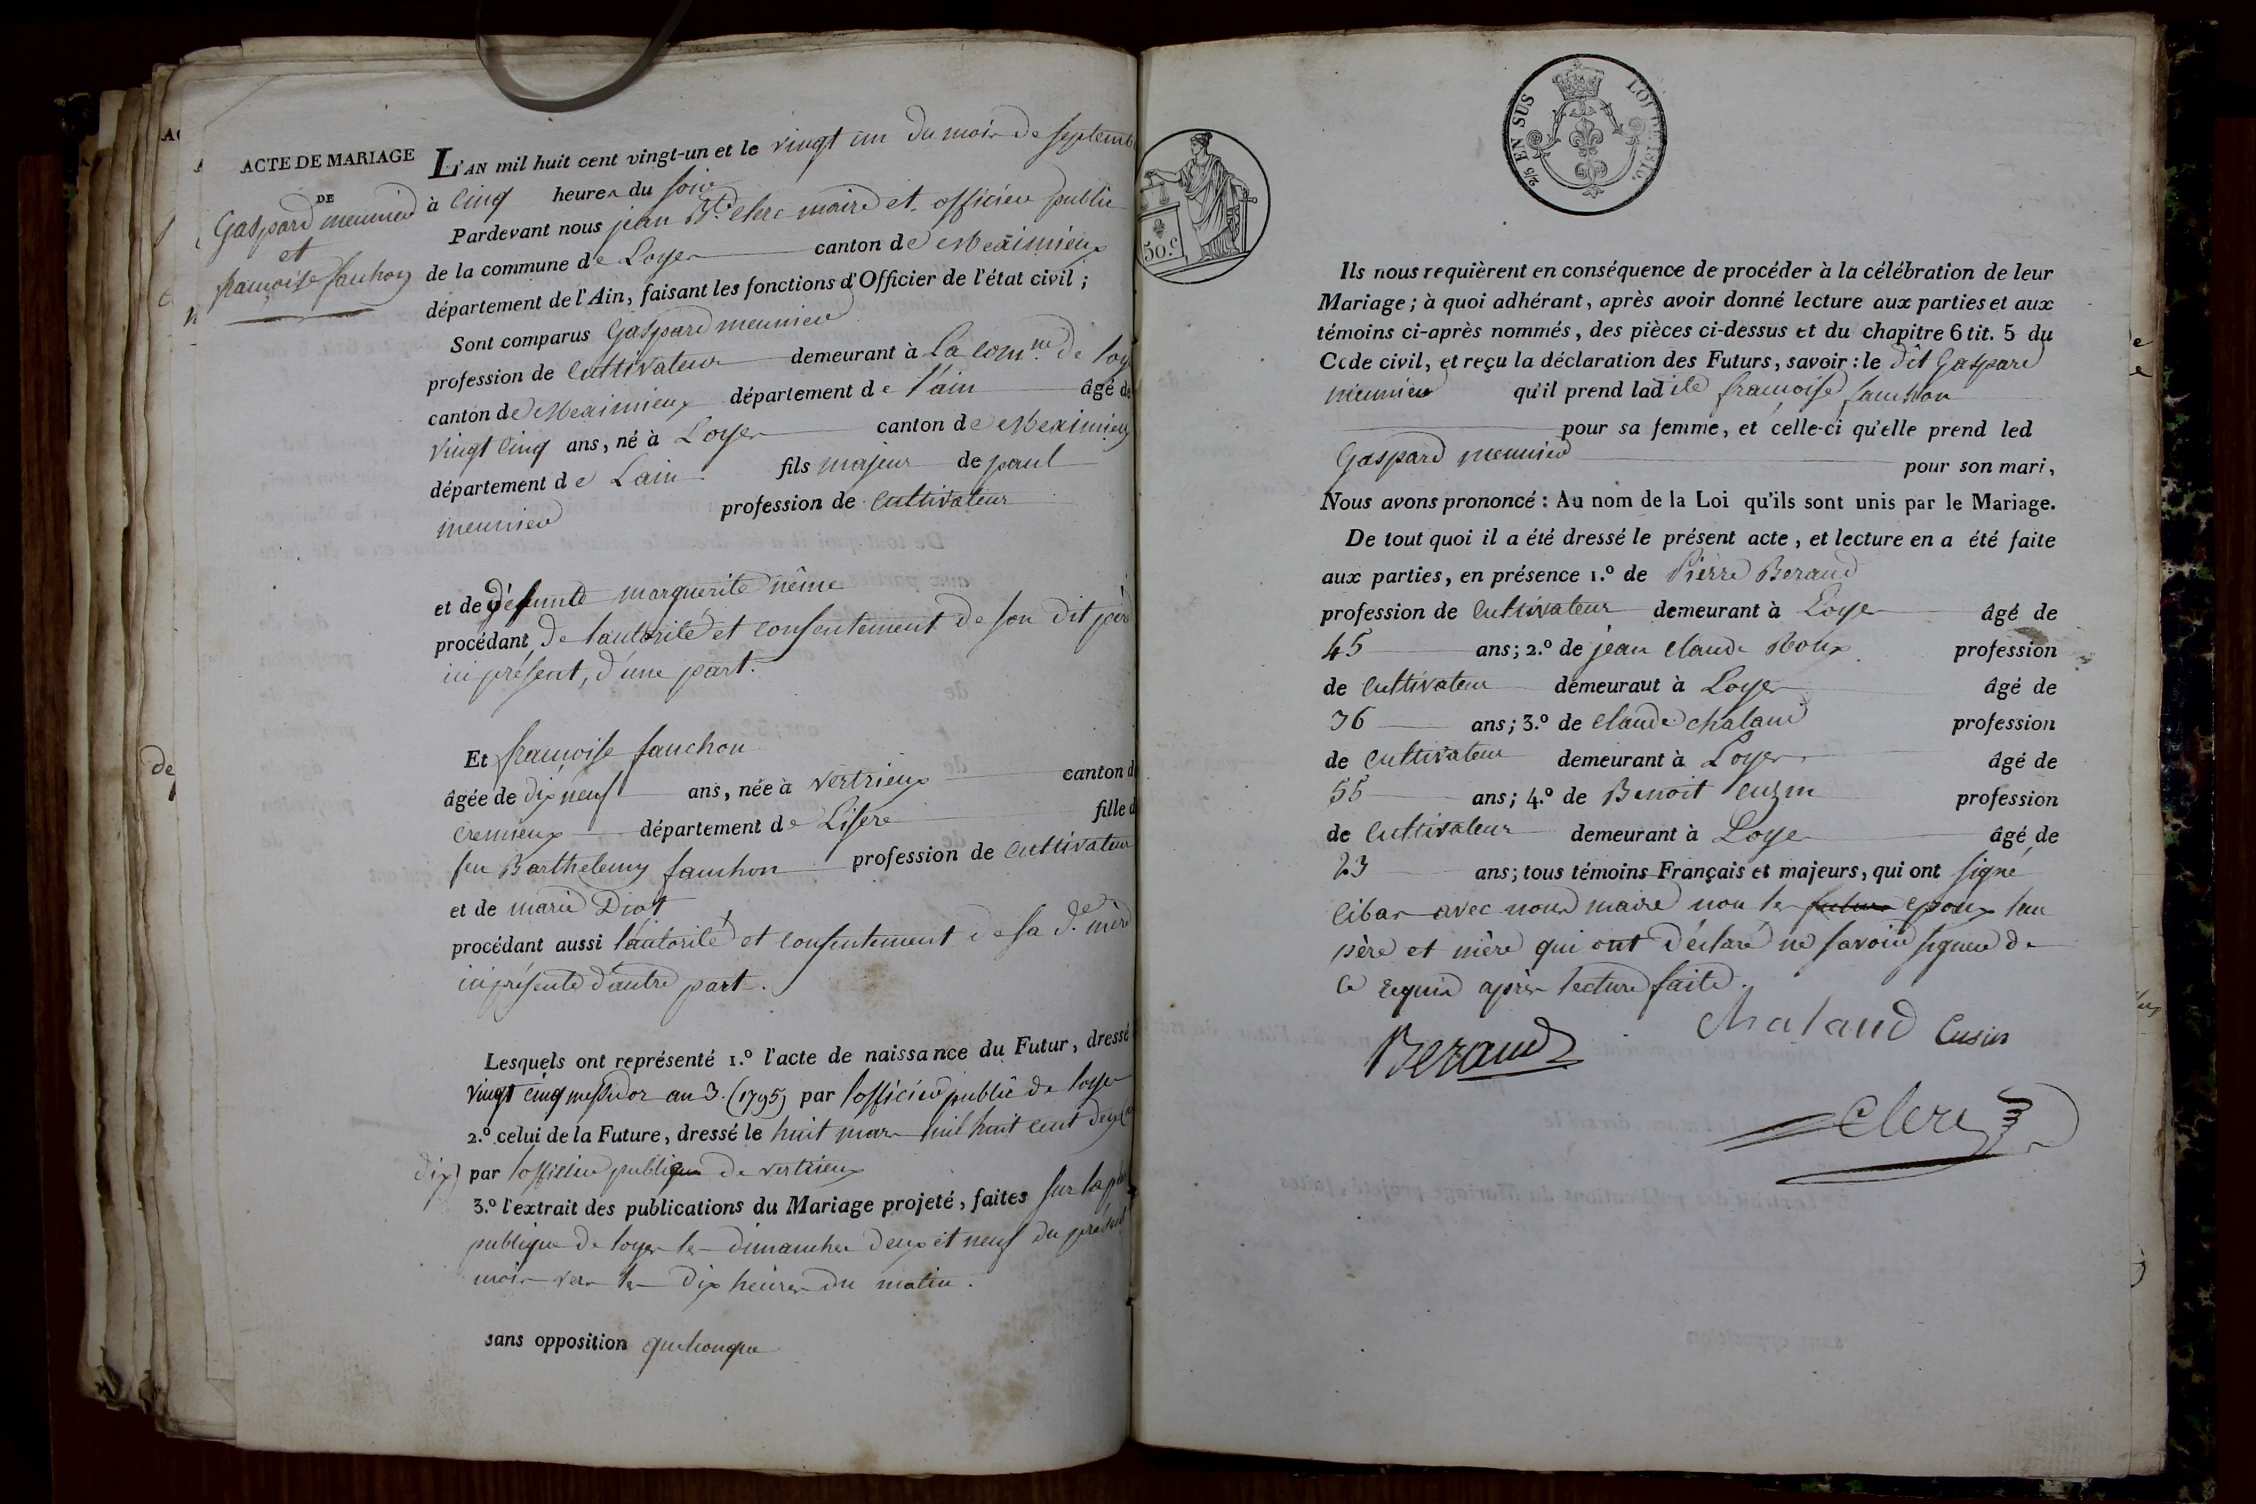 ACTE DE MARIAGE
DE
Gaspard meunier
et
françoise fauchon
L'AN mil huit cent vingt-un et le vingt un du mois de septemb
à cinq heures du soir
Pardevant nous jean Bte clerc maire et officier public
de la commune de Loyes canton de Meximieux
département de l'Ain, faisant les fonctions d'Officier de l'état civil ;
Sont comparus Gaspard meunier
profession de cultivateur demeurant à la comne de loy
canton de Meximieux département de l'ain âgé de
vingt cinq ans, né à Loyes canton de Meximieux
département de Lain fils majeur de paul
meunier profession de cultivateur
et de défunte marguerite
procédant de lautorité et consentement de son dit père
ici présent, d'une part.
Et françoise fauchon
âgée de dix neuf ans, née à vertrieux canton d
cremieux département de Lisere fille d
feu Barthelemy fauchon profession de cultivateur
et de marie Drot
procédant aussi lautorité et consentement de sa de mère
ici présente d'autre part.
Lesquels ont représenté 1.º l'acte de naissance du Futur, dressé
vingt cinq messidor an 3. (1795) par lofficier public de loyes
2.º celui de la Future, dressé le huit mars mil huit cent deux
dix) par lofficier public de vertrieux
3.º l'extrait des publications du Mariage projeté, faites sur la pla
publique de loyes les dimanches deux et neuf du présent
mois vers les dix heures du matin.
sans opposition quelconque
50.c
2/5 EN SUS
LOI DE 1816.
Ils nous requièrent en conséquence de procéder à la célébration de leur
Mariage ; à quoi adhérant, après avoir donné lecture aux parties et aux
témoins ci-après nommés, des pièces ci-dessus et du chapitre 6 tit. 5 du
Code civil, et reçu la déclaration des Futurs, savoir : le dit Gaspard
meunier qu'il prend lad ite françoise fauchon
pour sa femme, et celle-ci qu'elle prend led
Gaspard meunier pour son mari,
Nous avons prononcé : Au nom de la Loi qu'ils sont unis par le Mariage.
De tout quoi il a été dressé le présent acte, et lecture en a été faite
aux parties, en présence 1.º de Pierre Beraud
profession de cultivateur demeurant à Loyes âgé de
45 ans ; 2.º de jean claude Roux profession
de cultivateur demeuraut à Loyes âgé de
36 ans ; 3.º de claude chaland profession
de cultivateur demeurant à Loyes âgé de
55 ans ; 4.º de Benoit cuzin profession
de cultivateur demeurant à Loyes âgé de
23 ans ; tous témoins Français et majeurs, qui ont signé
avec nous maire non les futurs epoux leur
père et mère qui ont déclaré ne savoir signer de
ce requis après lecture faite.
Beraud
chaland
Cusin
Clerc